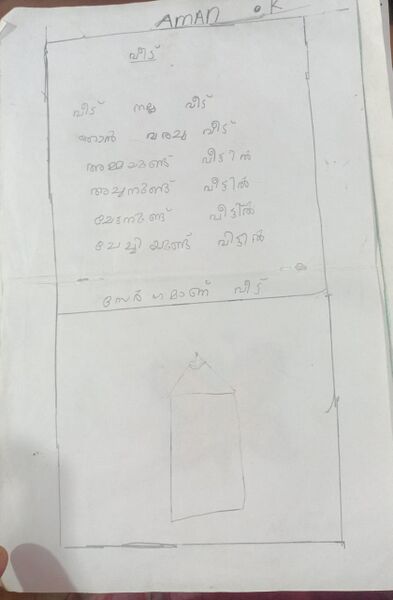 AMAN .K
വീട്
വീട് നല്ല വീട്
ഞാൻ വരച്ച വീട്
അമ്മയുണ്ട് വീട്ടിൽ
അച്ചനുണ്ട് വീട്ടിൽ
ചേടനുണ്ട് വീട്ടിൽ
ചേച്ചിയുണ്ട് വിട്ടിൽ
സേർഗമാണ് വീട്